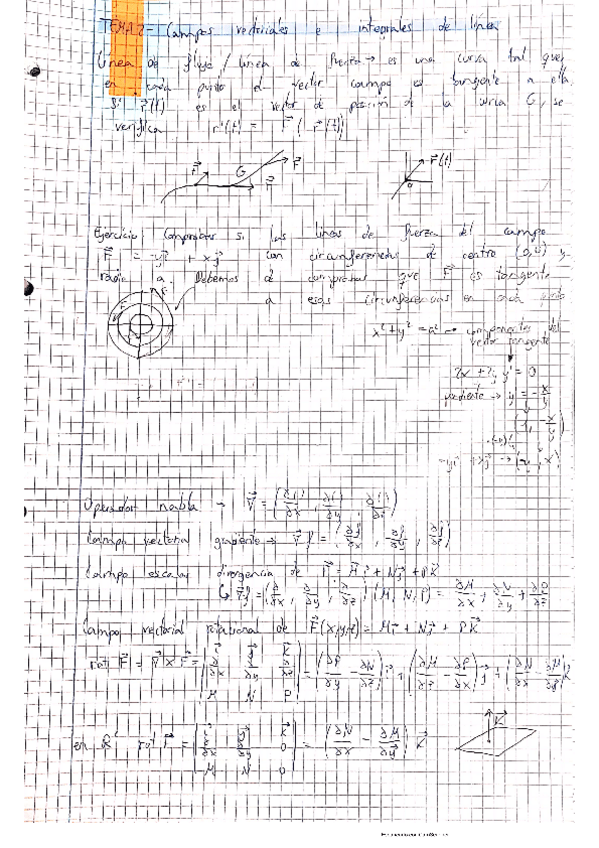 TEMA 2 - Campos vectoriales e integrales de línea
Línea de flujo / línea de fuerza → es una curva tal que,
en cada punto el vector campo es tangente a ella.
Si r⃗(t) es el vector de posición de la curva G, se
verifica r'(t) = F⃗(r⃗(t))
F⃗ G F⃗ F⃗ r⃗(t)
Ejercicio Comprobar si las líneas de fuerza del campo
F⃗ = -yi⃗ + xj⃗ son circunferencias de centro (0,0) y
radio a. Debemos de comprobar que F⃗ es tangente
a esas circunferencias en cada punto
x² + y² = a² → componentes del
vector tangente
2x + 2y y' = 0
pendiente → y' = -x/y
(1, -x/y)
·(-y)
-yi⃗ + xj⃗ → (-y, x)
Operador nabla → ∇⃗ = (∂()/∂x, ∂()/∂y, ∂()/∂z)
Campo vectorial gradiente → ∇⃗f = (∂f/∂x, ∂f/∂y, ∂f/∂z)
Campo escalar divergencia de F⃗ = Mi⃗ + Nj⃗ + Pk⃗
(∂/∂x, ∂/∂y, ∂/∂z) (M, N, P) = ∂M/∂x + ∂N/∂y + ∂P/∂z
Campo vectorial rotacional de F⃗(x,y,z) = Mi⃗ + Nj⃗ + Pk⃗
rot F⃗ = ∇⃗ x F⃗ = | i⃗ j⃗ k⃗ | ∂/∂x ∂/∂y ∂/∂z | M N P | = (∂P/∂y - ∂N/∂z) i⃗ + (∂M/∂z - ∂P/∂x) j⃗ + (∂N/∂x - ∂M/∂y) k⃗
en R² rot F⃗ = | i⃗ j⃗ k⃗ | ∂/∂x ∂/∂y 0 | M N 0 | = (∂N/∂x - ∂M/∂y) k⃗
k⃗